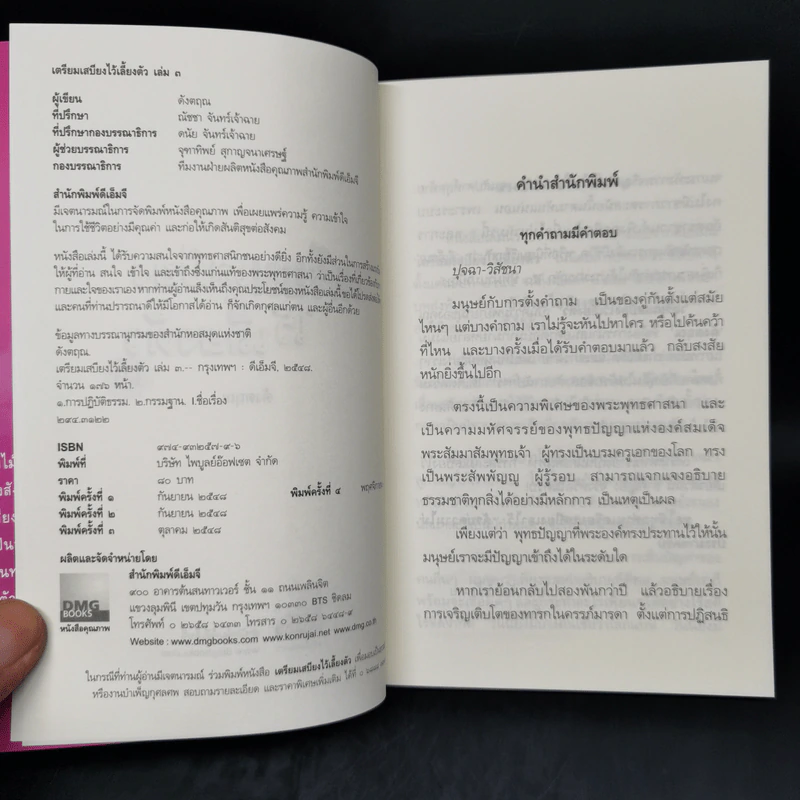 เตรียมเสบียงไว้เลี้ยงตัว เล่ม ๓
ผู้เขียน ดังตฤณ
ที่ปรึกษา ณัชชา จันทร์เจ้าฉาย
ที่ปรึกษากองบรรณาธิการ ดนัย จันทร์เจ้าฉาย
ผู้ช่วยบรรณาธิการ จุฑาทิพย์ สุกาญจนาเศรษฐ์
กองบรรณาธิการ ทีมงานฝ่ายผลิตหนังสือคุณภาพสำนักพิมพ์ดีเอ็มจี
สำนักพิมพ์ดีเอ็มจี
มีเจตนารมณ์ในการจัดพิมพ์หนังสือคุณภาพ เพื่อเผยแพร่ความรู้ ความเข้าใจ
ในการใช้ชีวิตอย่างมีคุณค่า และก่อให้เกิดสันติสุขต่อสังคม
หนังสือเล่มนี้ ได้รับความสนใจจากพุทธศาสนิกชนอย่างดียิ่ง อีกทั้งยังมีส่วนในการสร้าง
ให้ผู้ที่อ่าน สนใจ เข้าใจ และเข้าถึงซึ่งแก่นแท้ของพระพุทธศาสนา ว่าเป็นเรื่องที่เกี่ยวข้อง
กายและใจของเราเอง หากท่านผู้อ่านเล็งเห็นถึงคุณประโยชน์ของหนังสือเล่มนี้ ขอได้โปรด
และคนที่ท่านปรารถนาดีให้มีโอกาสได้อ่าน ก็จักเกิดกุศลแก่ตน และผู้อื่นอีกด้วย
ข้อมูลทางบรรณานุกรมของสำนักหอสมุดแห่งชาติ
ดังตฤณ.
เตรียมเสบียงไว้เลี้ยงตัว เล่ม ๓.-- กรุงเทพฯ : ดีเอ็มจี, ๒๕๔๘.
จำนวน ๑๗๖ หน้า.
๑.การปฏิบัติธรรม. ๒.กรรมฐาน. I.ชื่อเรื่อง
๒๙๔.๓๑๒๒
ISBN ๙๗๔-๙๓๒๕๗-๙-๖
พิมพ์ที่ บริษัท ไพบูลย์อ๊อฟเซต จำกัด
ราคา ๘๐ บาท
พิมพ์ครั้งที่ ๑ กันยายน ๒๕๔๘ พิมพ์ครั้งที่ ๔
พิมพ์ครั้งที่ ๒ กันยายน ๒๕๔๘
พิมพ์ครั้งที่ ๓ ตุลาคม ๒๕๔๘
ผลิตและจัดจำหน่ายโดย
สำนักพิมพ์ดีเอ็มจี
๙๐๐ อาคารต้นสนทาวเวอร์ ชั้น ๑๑ ถนนเพลินจิต
แขวงลุมพินี เขตปทุมวัน กรุงเทพฯ ๑๐๓๓๐ BTS ชิดลม
โทรศัพท์ ๐ ๒๖๕๘ ๖๔๓๓ โทรสาร ๐ ๒๖๕๘ ๖๔๔๘-๙
Website : www.dmgbooks.com www.konrujai.net www.dmg.co.th
DMG
BOOKS
หนังสือคุณภาพ
ในกรณีที่ท่านผู้อ่านมีเจตนารมณ์ ร่วมพิมพ์หนังสือ เตรียมเสบียงไว้เลี้ยงตัว
หรืองานบำเพ็ญกุศลศพ สอบถามรายละเอียด และราคาพิเศษเพิ่มเติม ได้ที่
คำนำสำนักพิมพ์
ทุกคำถามมีคำตอบ
ปุจฉา-วิสัชนา
มนุษย์กับการตั้งคำถาม เป็นของคู่กันตั้งแต่สมัย
ไหนๆ แต่บางคำถาม เราไม่รู้จะหันไปหาใคร หรือไปค้นคว้า
ที่ไหน และบางครั้งเมื่อได้รับคำตอบมาแล้ว กลับสงสัย
หนักยิ่งขึ้นไปอีก
ตรงนี้เป็นความพิเศษของพระพุทธศาสนา และ
เป็นความมหัศจรรย์ของพุทธปัญญาแห่งองค์สมเด็จ
พระสัมมาสัมพุทธเจ้า ผู้ทรงเป็นบรมครูเอกของโลก ทรง
เป็นพระสัพพัญญู ผู้รู้รอบ สามารถแจกแจงอธิบาย
ธรรมชาติทุกสิ่งได้อย่างมีหลักการ เป็นเหตุเป็นผล
เพียงแต่ว่า พุทธปัญญาที่พระองค์ทรงประทานไว้ให้นั้น
มนุษย์เราจะมีปัญญาเข้าถึงได้ในระดับใด
หากเราย้อนกลับไปสองพันกว่าปี แล้วอธิบายเรื่อง
การเจริญเติบโตของทารกในครรภ์มารดา ตั้งแต่การปฏิสนธิ